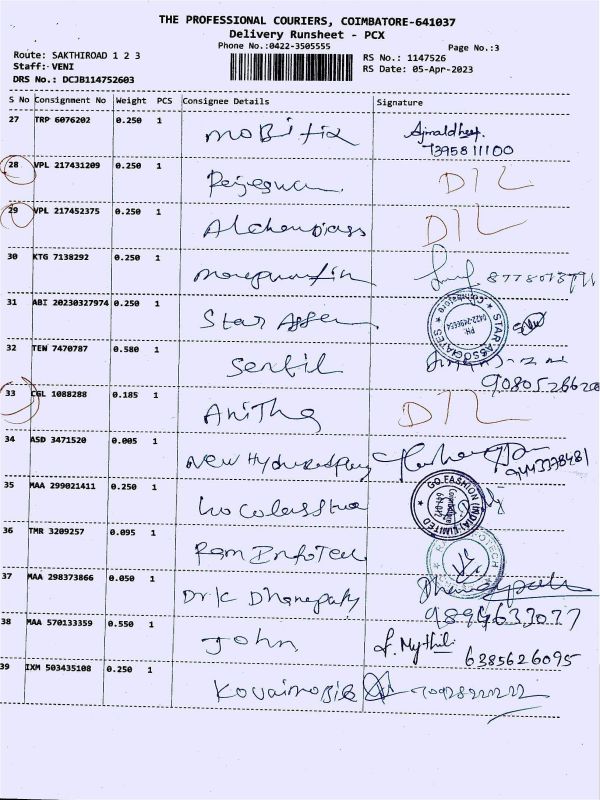 THE PROFESSIONAL COURIERS, COIMBATORE-641037
Delivery Runsheet - PCX
Phone No.:0422-3505555
Page No.:3
Route: SAKTHIROAD 1 2 3
Staff: VENI
DRS No.: DCJB114752603
RS No.: 1147526
RS Date: 05-Apr-2023
S No Consignment No Weight PCS Consignee Details Signature
27 TRP 6076202 0.250 1 MOBitix
7395811100
28 VPL 217431209 0.250 1
29 VPL 217452375 0.250 1
30 KTG 7138292 0.250 1
31 ABI 20230327974 0.250 1 Star Assen
STAR ASSOCIATES
PH: 0422-2496664
Coimbatore
32 TEN 7470787 0.580 1 Senthil
33 CGL 1088288 0.185 1 Anitha
34 ASD 3471520 0.005 1 New
35 MAA 299021411 0.250 1
GO FASHION (INDIA) LIMITED
36 TMR 3209257 0.095 1 Ram InfoTech
37 MAA 298373866 0.050 1 Dr K Dhanapaty
9894633077
38 MAA 570133359 0.550 1 John J. Mythili
6385626095
39 IXM 503435108 0.250 1 Kovaimobile